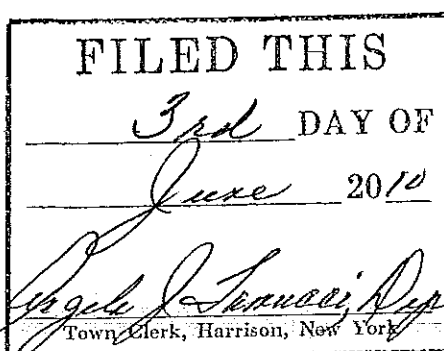 FILED THIS
3rd DAY OF
June 2010
J. Dep
Town Clerk, Harrison, New York